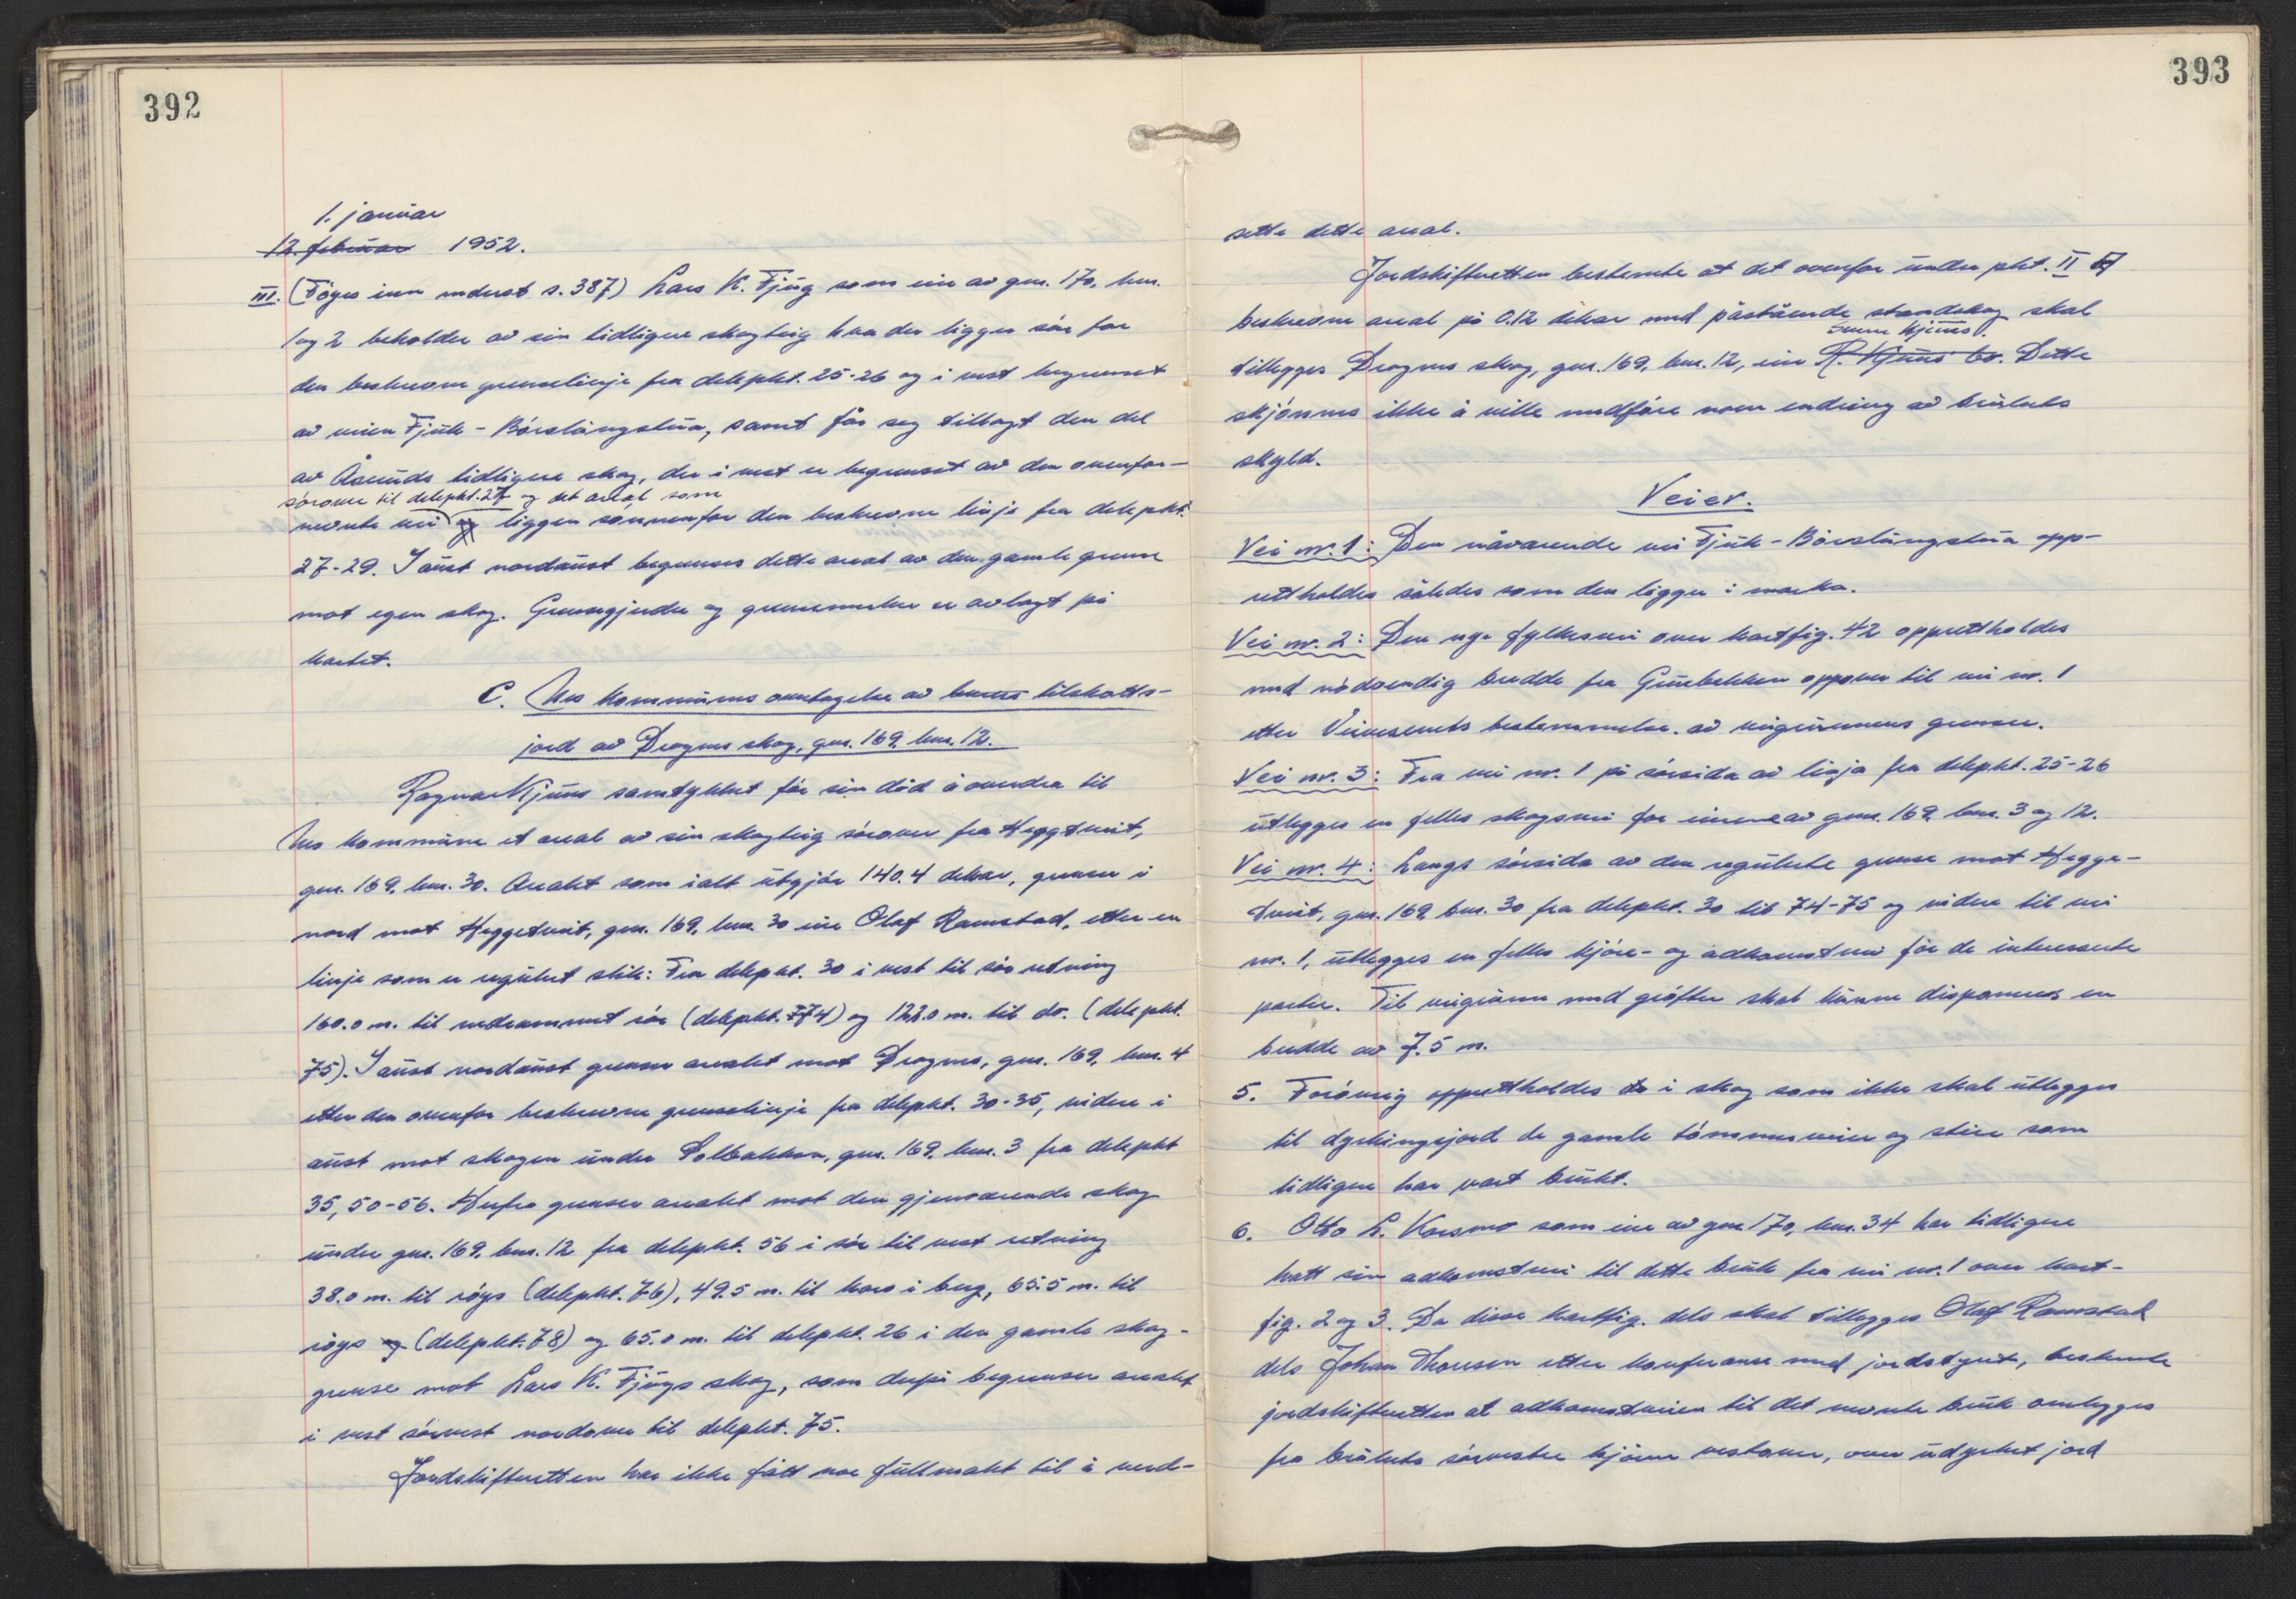 392
1. januar
12. februar 1952.
III. (Föyes inn nederst s. 387) Lars K. Fjüg som eier av gnr. 170, bnr.
1 og 2 beholder av sin tidligere skogteig hva der ligger sör for
den beskrevne grenselinje fra delepkt. 25-26 og i vest begrenset
av veien Fjük - Börslüngstüa, samt får seg tillagt den del
av Åsrüds tidligere skog, der i vest er begrenset av den ovenfor-
sörover til delepkt. 27 og det areal som
nevnte vei og ligger sönnenfor den beskrevne linje fra delepkt.
27-29. I aüst nordaüst begrenses dette areal av den gamle grense
mot egen skog. Grensegjerder og grensemerker er avlagt på
kartet.
C. Nes kommünes overtagelse av bureis tilskotts-
jord av Dragnes skog, gnr. 169, bnr. 12.
Ragnar Kjüus samtykket för sin död å overdra til
Nes kommüne et areal av sin skogteig sörover fra Heggtveit,
gnr. 169, bnr. 30. Arealet som ialt ütgjör 140.4 dekar, grenser i
nord mot Heggetveit, gnr. 169, bnr. 30 eier Olaf Ramstad, etter en
linje som er regülert slik: Fra delepkt. 30 i vest til sör retning
160.0 m. til nedrammet rör (delepkt. 74) og 122.0 m. til do. (delepkt.
75). I aüst nordaüst grenser arealet mot Dragnes, gnr. 169, bnr. 4
etter den ovenfor beskrevne grenselinje fra delepkt. 30-35, videre i
aüst mot skogen ünder Solbakken, gnr. 169, bnr. 3 fra delepkt
35, 50-56. Herfra grenser arealet mot den gjenværende skog
ünder gnr. 169, bnr. 12 fra delepkt. 56 i sör til vest retning
38.0 m. til röys (delepkt. 76), 49.5 m. til kors i berg, 65.5 m. til
röys og (delepkt. 78) og 65.0 m. til delepkt. 26 i den gamle skog-
grense mot Lars K. Fjügs skog, som derpå begrenser arealet
i vest sörvest nordover til delepkt. 75.
Jordskifteretten har ikke fått noe füllmakt til å verd-
393
sette dette areal.
Jordskifteretten bestemte at det ovenfor ünder pkt. II
beskrevne areal på 0.12 dekar med påstående standskog skal
Kjüus.
tillegges Dragnes skog, gnr. 169, bnr. 12, eier R. Kjüus bo. Dette
skjönnes ikke å ville medföre noen endring av brükets
skyld.
Veier.
Vei nr. 1: Den nåværende vei Fjük - Börslüngstüa opp-
rettholdes således som den ligger i marka.
Vei nr. 2: Den nye fylkesvei over kartfig. 42 opprettholdes
med nödvendig bredde fra Grüebekken oppover til vei nr. 1
etter Veivesenets bestemmelse av veigrunnens grenser.
Vei nr. 3: Fra vei nr. 1 på sörsida av linja fra delepkt. 25-26
ütlegges en felles skogsvei for eierne av gnr. 169, bnr. 3 og 12.
Vei nr. 4: Langs sörsida av den regülerte grense mot Hegge-
tveit, gnr. 169, bnr. 30 fra delepkt. 30 til 74-75 og videre til vei
nr. 1, ütlegges en felles kjöre- og adkomstvei for de interesserte
parter. Til veigrunn med gröfter skal künne disponeres en
bredde av 7.5 m.
5. Forövrig opprettholdes de i skog som ikke skal ütlegges
til dyrkingsjord de gamle tömmerveier og stier som
tidligere har vært brükt.
6. Otto L. Korsmo som eier av gnr. 170, bnr. 34 har tidligere
hatt sin adkomstvei til dette brük fra vei nr. 1 over kart-
fig. 2 og 3. Da disse kartfig. dels skal tillegges Olaf Ramstad
dels Johan Thoresen etter konferanse med jordstyret, bestemte
jordskifteretten at adkomstveien til det nevnte brük omlegges
fra brükets sörvestre hjörne vestover, over üdyrket jord